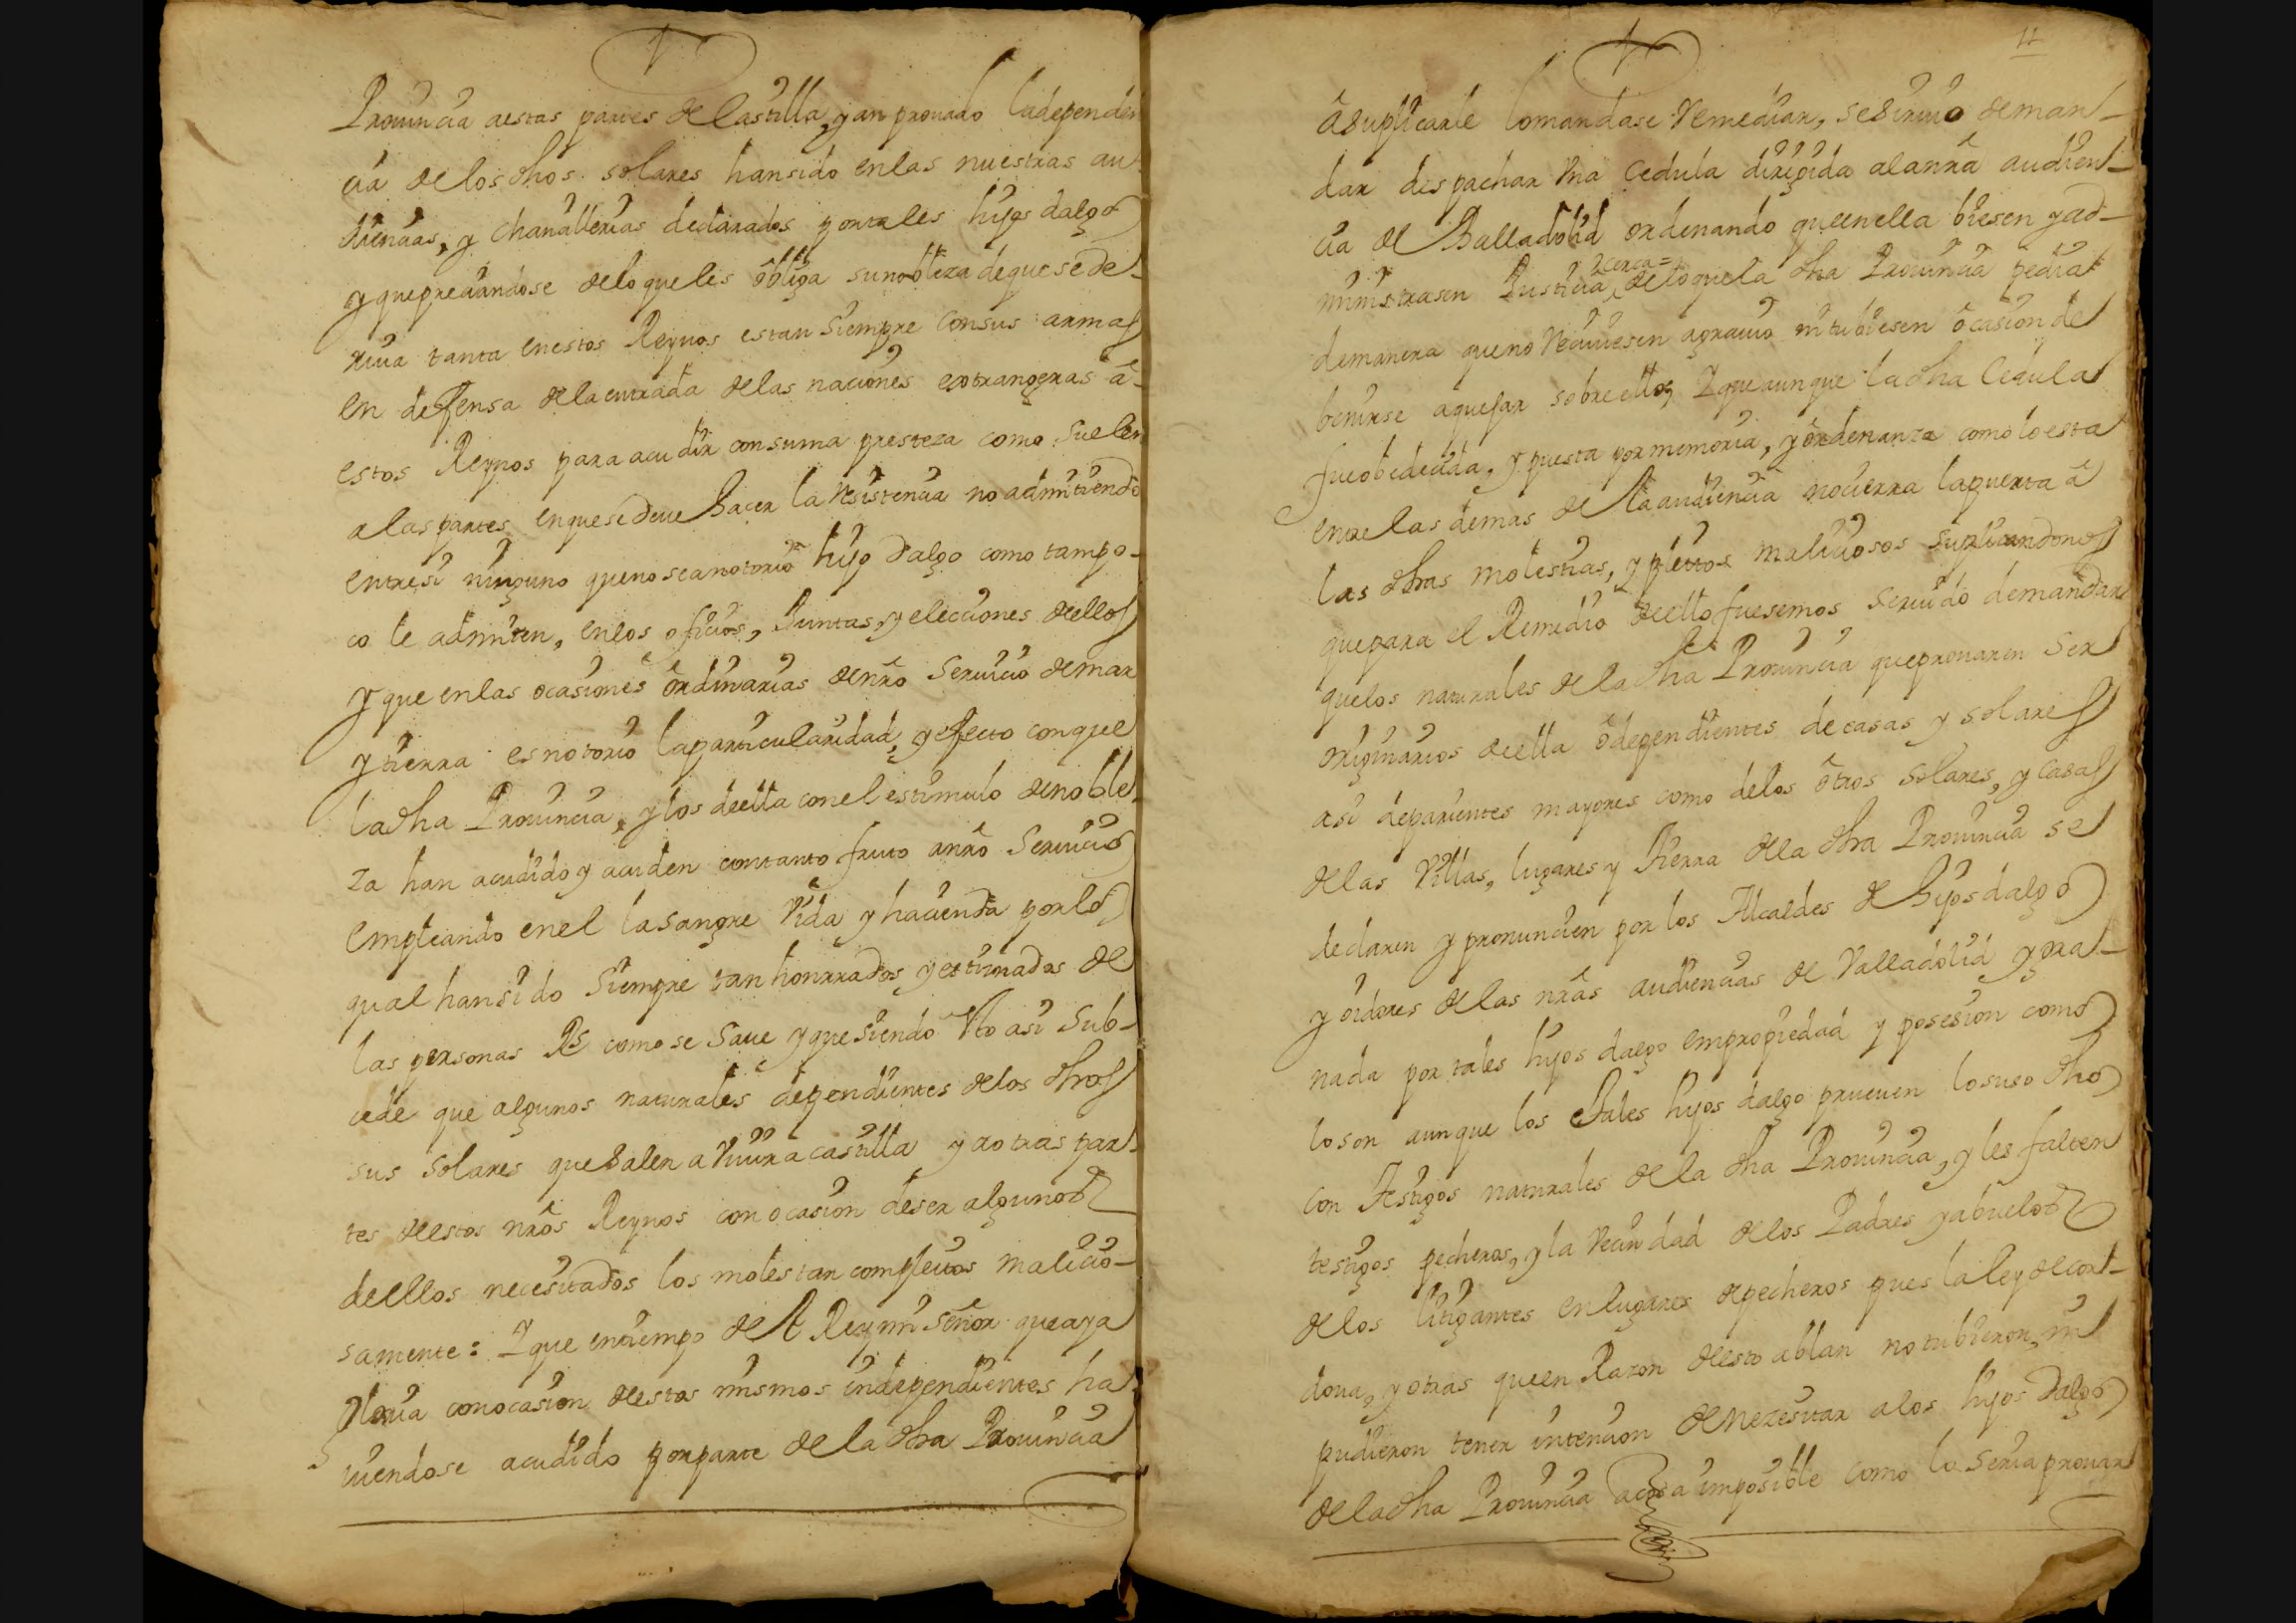 Prouincia aestas partes de Castilla, y an prouado ladependen
cia de los dhos solares hansido enlas nuestras au
diencias, y chancillerias declarados portales hijos dalgo
y que preciandose delo que les obliga su nobleza de que se de-
riua tanta enestos Reynos estan siempre consus armas
en defensa dela entrada delas naciones extrangeras a
estos Reynos para acudir consuma presteza como suelen
alas partes enquesedeue hacer la Resistencia no admitiendo
entresi ninguno queno sea notorio hijo dalgo como tampo-
co le admiten, enlos oficios, Juntas, y elecciones dellos
y que enlas ocasiones ordinarias denro seruicio demar
y tierra es notorio laparticularidad, y efecto conque
ladha Prouincia, y los deella conel estimulo denoble
za han acudido y acuden contanto fruto anro seruicio
empleando enel la sangre Vida y hacienda por lo
qual hansido siempre tan honrrados, y estimados de
las personas Rs como se saue y que siendo Sto asi sub-
cede que algunos naturales dependientes delos dhos
sus solares que salen a Viuir a castilla y a otras par
tes destos nros Reynos con ocasion deser algunos
deellos necesitados los molestan compleitos malicio-
samente: Y que entiempo del Rey mi señor que aya
gloria conocasion destos mismos independientes ha
uiendose acudido porparte de la dha Prouincia
11
a suplicarle lo mandase Remediar, se siruio deman-
dar despachar Vna cedula dirigida alanra audien-
cia de Valladolid ordenando queenella biesen y ad-
ministrasen Justicia, cerca= deloquela dha Prouincia pedia
demanera queno Reciuiesen agrauio ni tubiesen ocasion de
benirse aquejar sobreello, Y que aunque la dha Cedula
fueobedecida, y puesta por memoria, y ordenanza como lo esta
entre las demas de la audiencia nocierra lapuerta a
las dhas molestias, y pleitos maliciosos suplicandonos
quepara el Remedio deello fuesemos seruido demandar
quelos naturales dela dha Prouincia queprouaren ser
originarios deella o dependientes de casas y solares
asi deparientes mayores como delos otros solares, y casas
delas Villas, lugares y tierra dela dha Prouincia se
declaren y pronuncien por los Alcaldes de hijos dalgo
y oidores delas nras audiencias de Valladolid y gra-
nada por tales hijos dalgo en propiedad y posesion como
lo son aunque los tales hijos dalgo prueuen lo suso dho
con testigos naturales de la dha Prouincia, y les falten
testigos pecheros, y la Vecindad de los Padres y abuelos
delos litigantes en lugares depecheros pues la ley decor-
doua, y otras queen Razon deesto ablan notubieron ni
pudieron tener intencion denezesitar alos hijos dalgo
dela dha Prouincia a cosa imposible como lo seria prouar